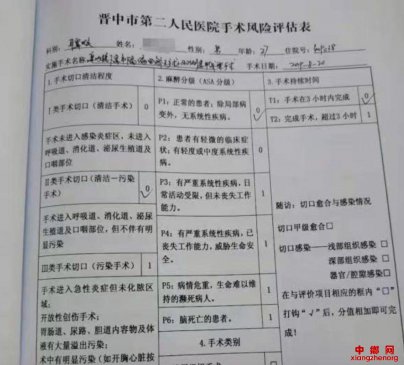 晋中市第二人民医院手术风险评估表
科别: 姓名: 性别: 男 年龄: 27 住院号:
实施手术名称: 手术日期:
1.手术切口清洁程度
I类手术切口（清洁手术） 0
手术未进入感染炎症区，未进入
呼吸道、消化道、泌尿生殖道及
口咽部位
II类手术切口（清洁—污染
手术） 0
手术进入呼吸道、消化道、泌尿
生殖道及口咽部位，但不伴有明
显污染
III类手术切口（污染手术） 1
手术进入急性炎症但未化脓区
域；
开放性创伤手术；
胃肠道、尿路、胆道内容物及体
液有大量溢出污染；
术中有明显污染（如开胸心脏按
2.麻醉分级（ASA 分级）
P1：正常的患者；除局部病
变外，无系统性疾病。 0
P2：患者有轻微的临床症
状；有轻度或中度系统性疾
病。 0
P3：有严重系统性疾病，日
常活动受限，但未丧失工作
能力。 1
P4：有严重系统性疾病，已
丧失工作能力，威胁生命安
全。 1
P5：病情危重，生命难以维
持的濒死病人。 1
P6：脑死亡的患者。 1
4.手术类别
3.手术持续时间
T1：手术在3小时内完成 0
T2：完成手术，超过3小时 1
随访：切口愈合与感染情况
切口甲级愈合□
切口感染——浅部组织感染□
深部组织感染□
器官/腔隙感染□
在与评价项目相应的框内“□”
打钩“√”后，分值相加即可完
成！
中乡网
xiangzhenorg